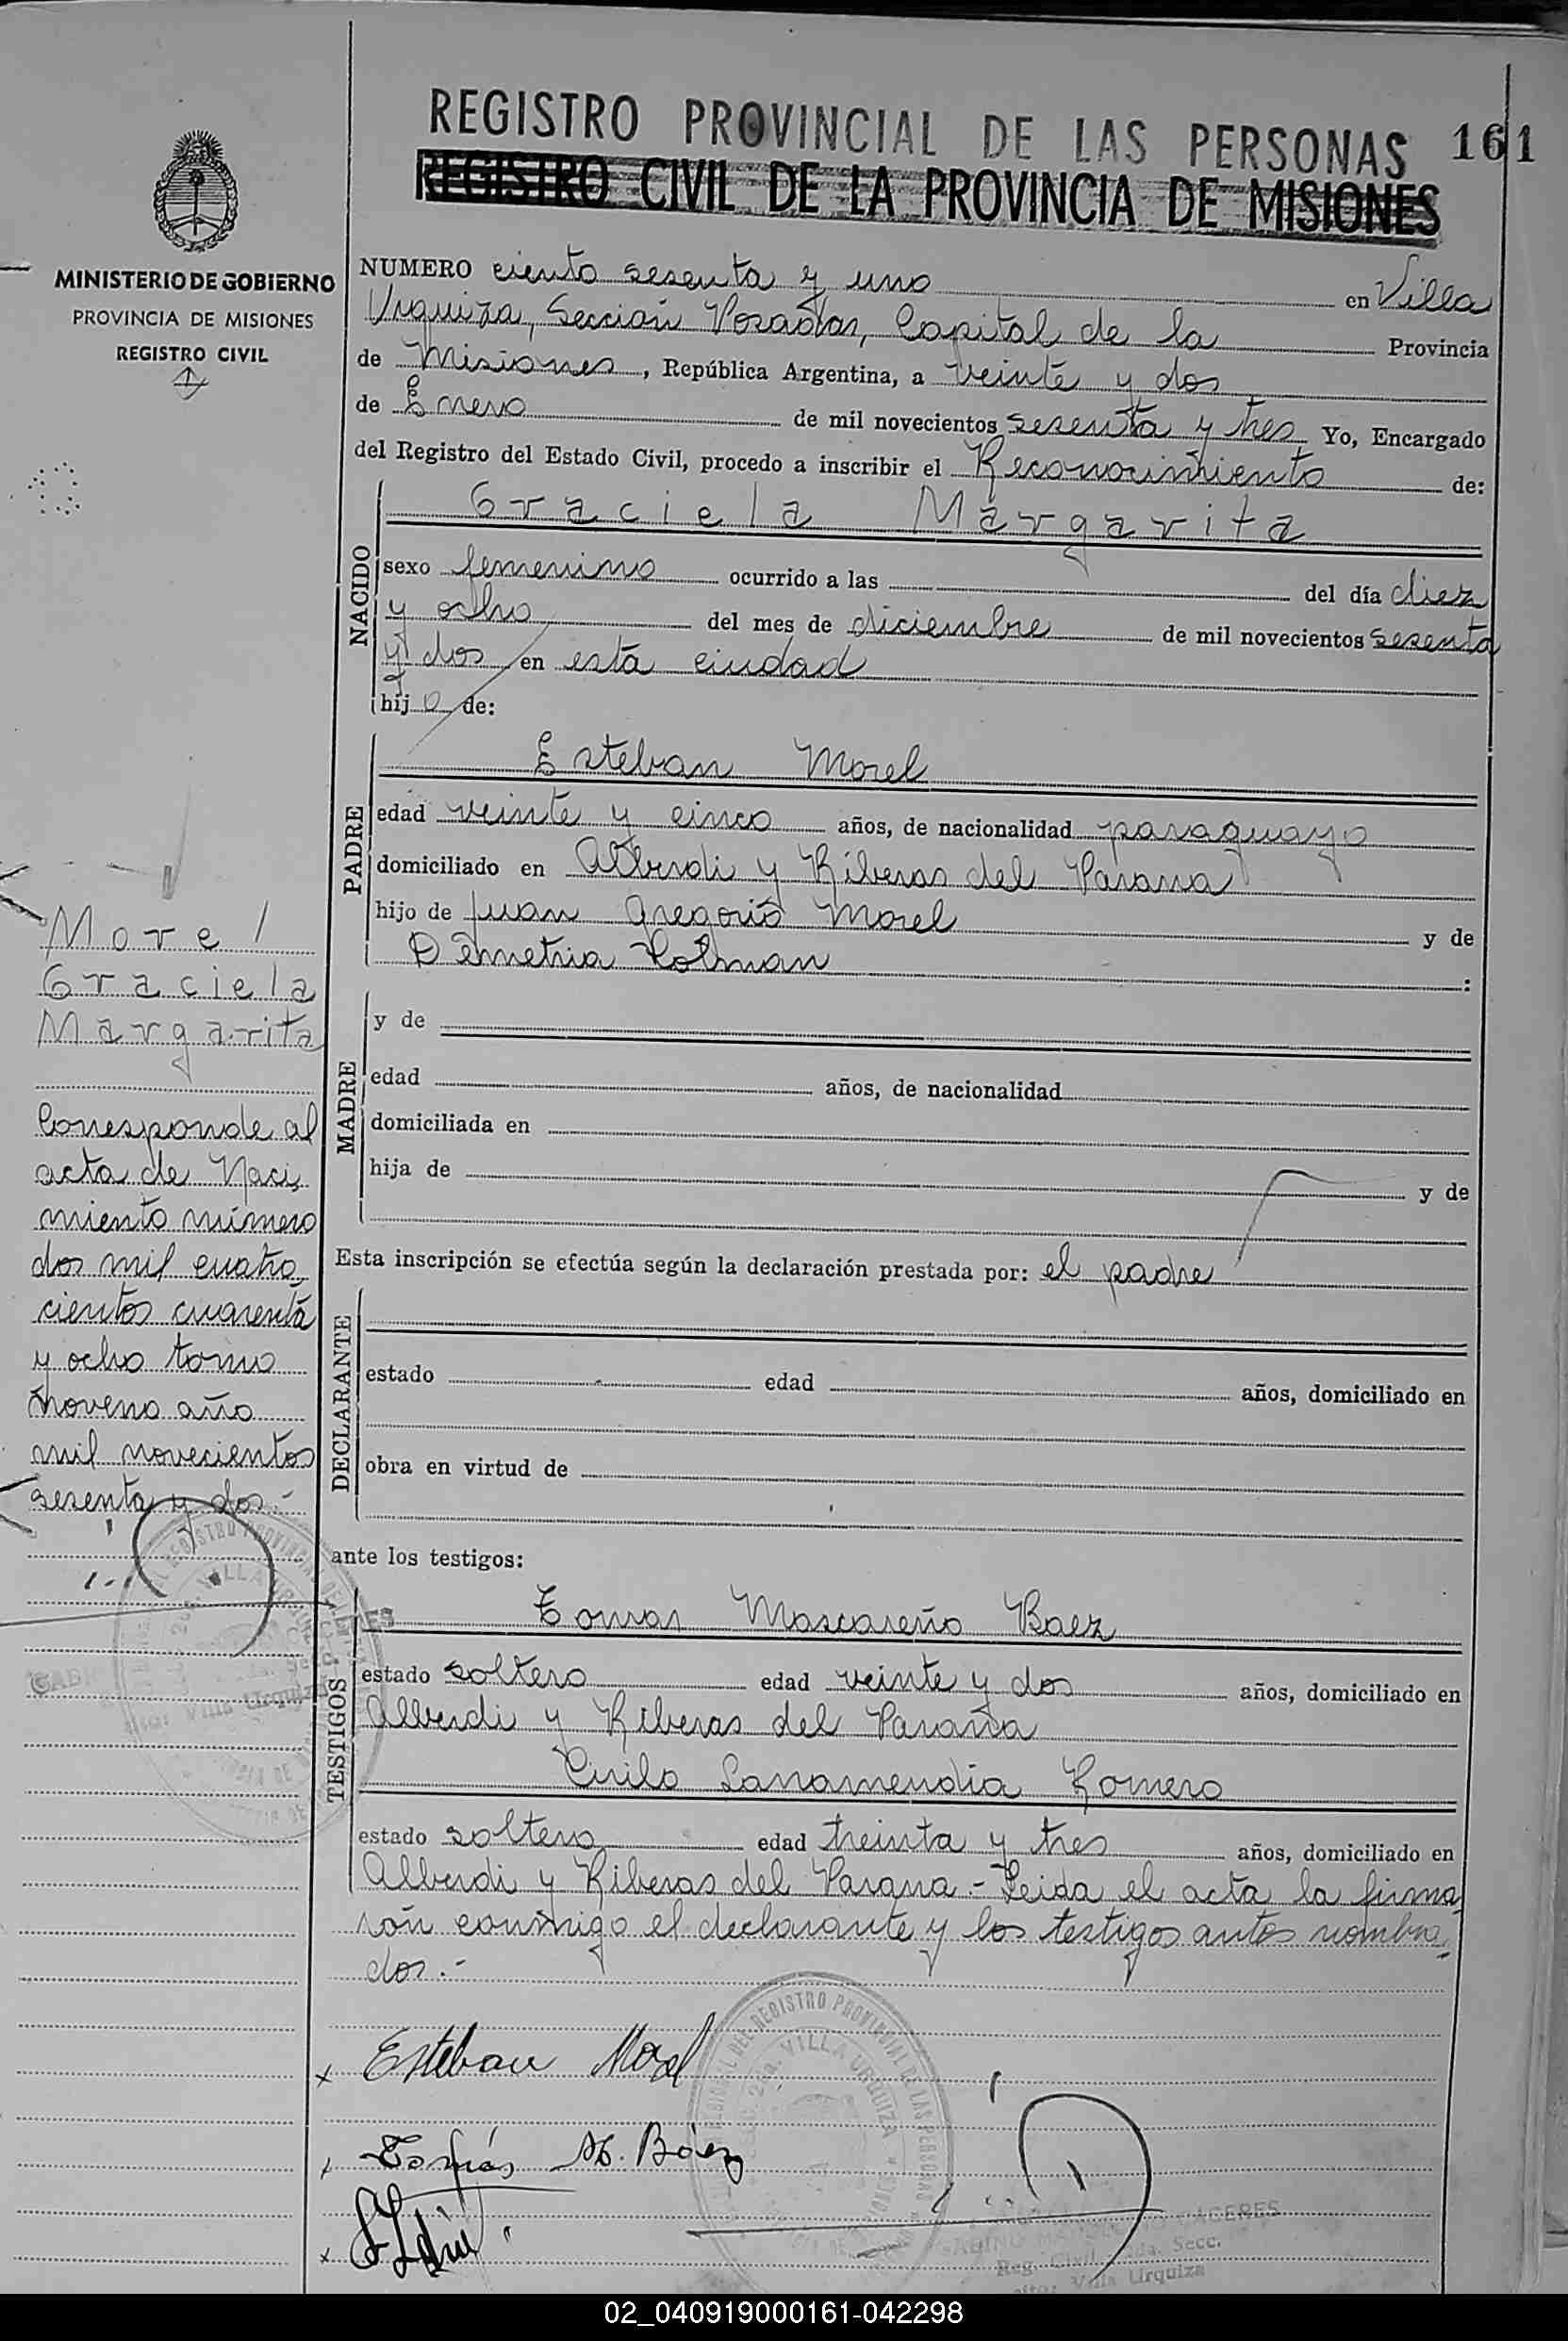 REGISTRO PROVINCIAL DE LAS PERSONAS 161
REGISTRO CIVIL DE LA PROVINCIA DE MISIONES
MINISTERIO DE GOBIERNO
PROVINCIA DE MISIONES
REGISTRO CIVIL
NUMERO ciento sesenta y uno en Villa
Urquiza, Sección Posadas, Capital de la Provincia
de Misiones, República Argentina, a veinte y dos
de Enero de mil novecientos sesenta y tres Yo, Encargado
del Registro del Estado Civil, procedo a inscribir el Reconocimiento de:
NACIDO
Graciela Margarita
sexo femenino ocurrido a las del día diez
y ocho del mes de diciembre de mil novecientos sesenta
y dos en esta ciudad
hija de:
PADRE
Esteban Morel
edad veinte y cinco años, de nacionalidad paraguayo
domiciliado en Alberdi y Riberas del Parana
hijo de Juan Gregorio Morel y de
Demetria :
MADRE
y de
edad años, de nacionalidad
domiciliada en
hija de y de
Esta inscripción se efectúa según la declaración prestada por: el padre
DECLARANTE
estado edad años, domiciliado en
obra en virtud de
ante los testigos:
TESTIGOS
Tomas Mascareño Baez
estado soltero edad veinte y dos años, domiciliado en
Alberdi y Riberas del Parana
Cirilo Sanamendia Romero
estado soltero edad treinta y tres años, domiciliado en
Alberdi y Riberas del Parana.- Leida el acta la firma
rón conmigo el declarante y los testigos antes nombra
dos.-
Morel
Graciela
Margarita
Corresponde al
acta de Naci
miento número
dos mil cuatro
cientos cuarenta
y ocho tomo
noveno año
mil novecientos
sesenta y dos.-
Esteban Morel
Tomás M. Báez
VILLA URQUIZA
CACERES
Reg. Civil Secc.
Villa Urquiza
02_040919000161-042298